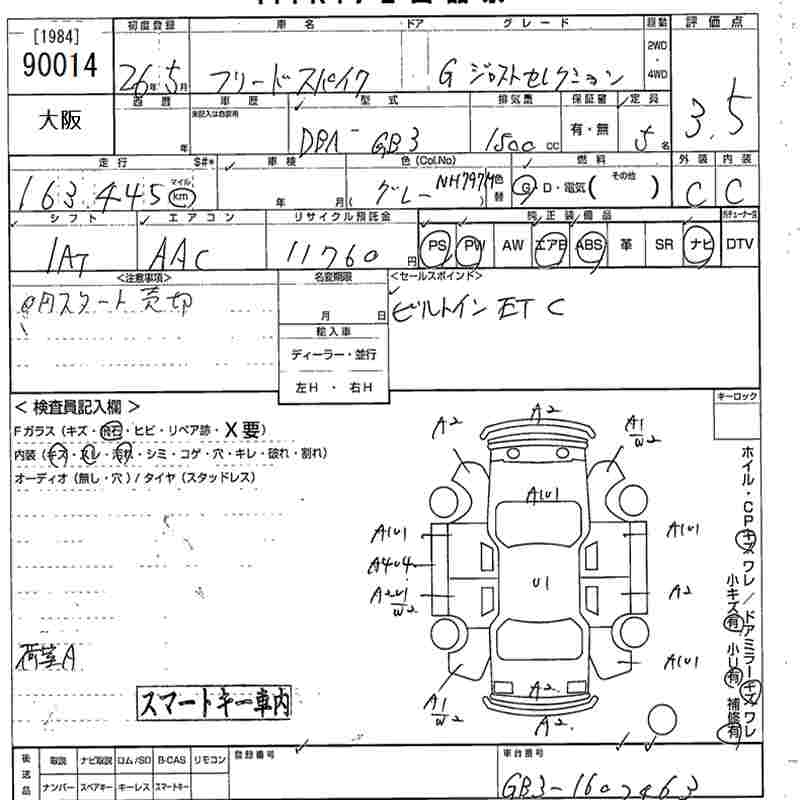 [1984]
90014
初度登録 車名 ドア グレード 駆動 評価点
26年 5月 フリードスパイク G ジャストセレクション 2WD・4WD 3.5
大阪
西暦 車歴 型式 排気量 保証書 定員
未記入は自家用
年 DBA-GB3 1500 cc 有・無 5名
走行 S#* 車検 色(Col.No) 燃料 外装 内装
163,445 マイル km 年 月 グレー NH797M 色替 G・D・電気(その他) C C
シフト エアコン リサイクル預託金 純正装備品
IAT AAC 11760円 PS PW AW エアB ABS 革 SR ナビ DTV
<注意事項> 名変期限 <セールスポイント>
0円スタート売切 月 日 ビルトインETC
輸入車
ディーラー・並行
左H・右H
<検査員記入欄> キーロック
Fガラス(キズ・飛石・ヒビ・リペア跡・X要)
内装(キズ・スレ・汚れ・シミ・コゲ・穴・キレ・破れ・割れ)
オーディオ(無し・穴)/タイヤ(スタッドレス)
A2 A2 A1 W2
A1U1
A1U1 A1U1
A4U4
A2U1 W2 U1 A2
A1U1
A1 W2 A2
A2
ホイル・CPキズワレ/ドアミラーキズワレ
小キズ有 小U有 補修有
荷室A
スマートキー車内
後送品 取説 ナビ取説 ロム/SD B-CAS リモコン 登録番号 車台番号
ナンバー スペアキー キーレス スマートキー GB3-1602463